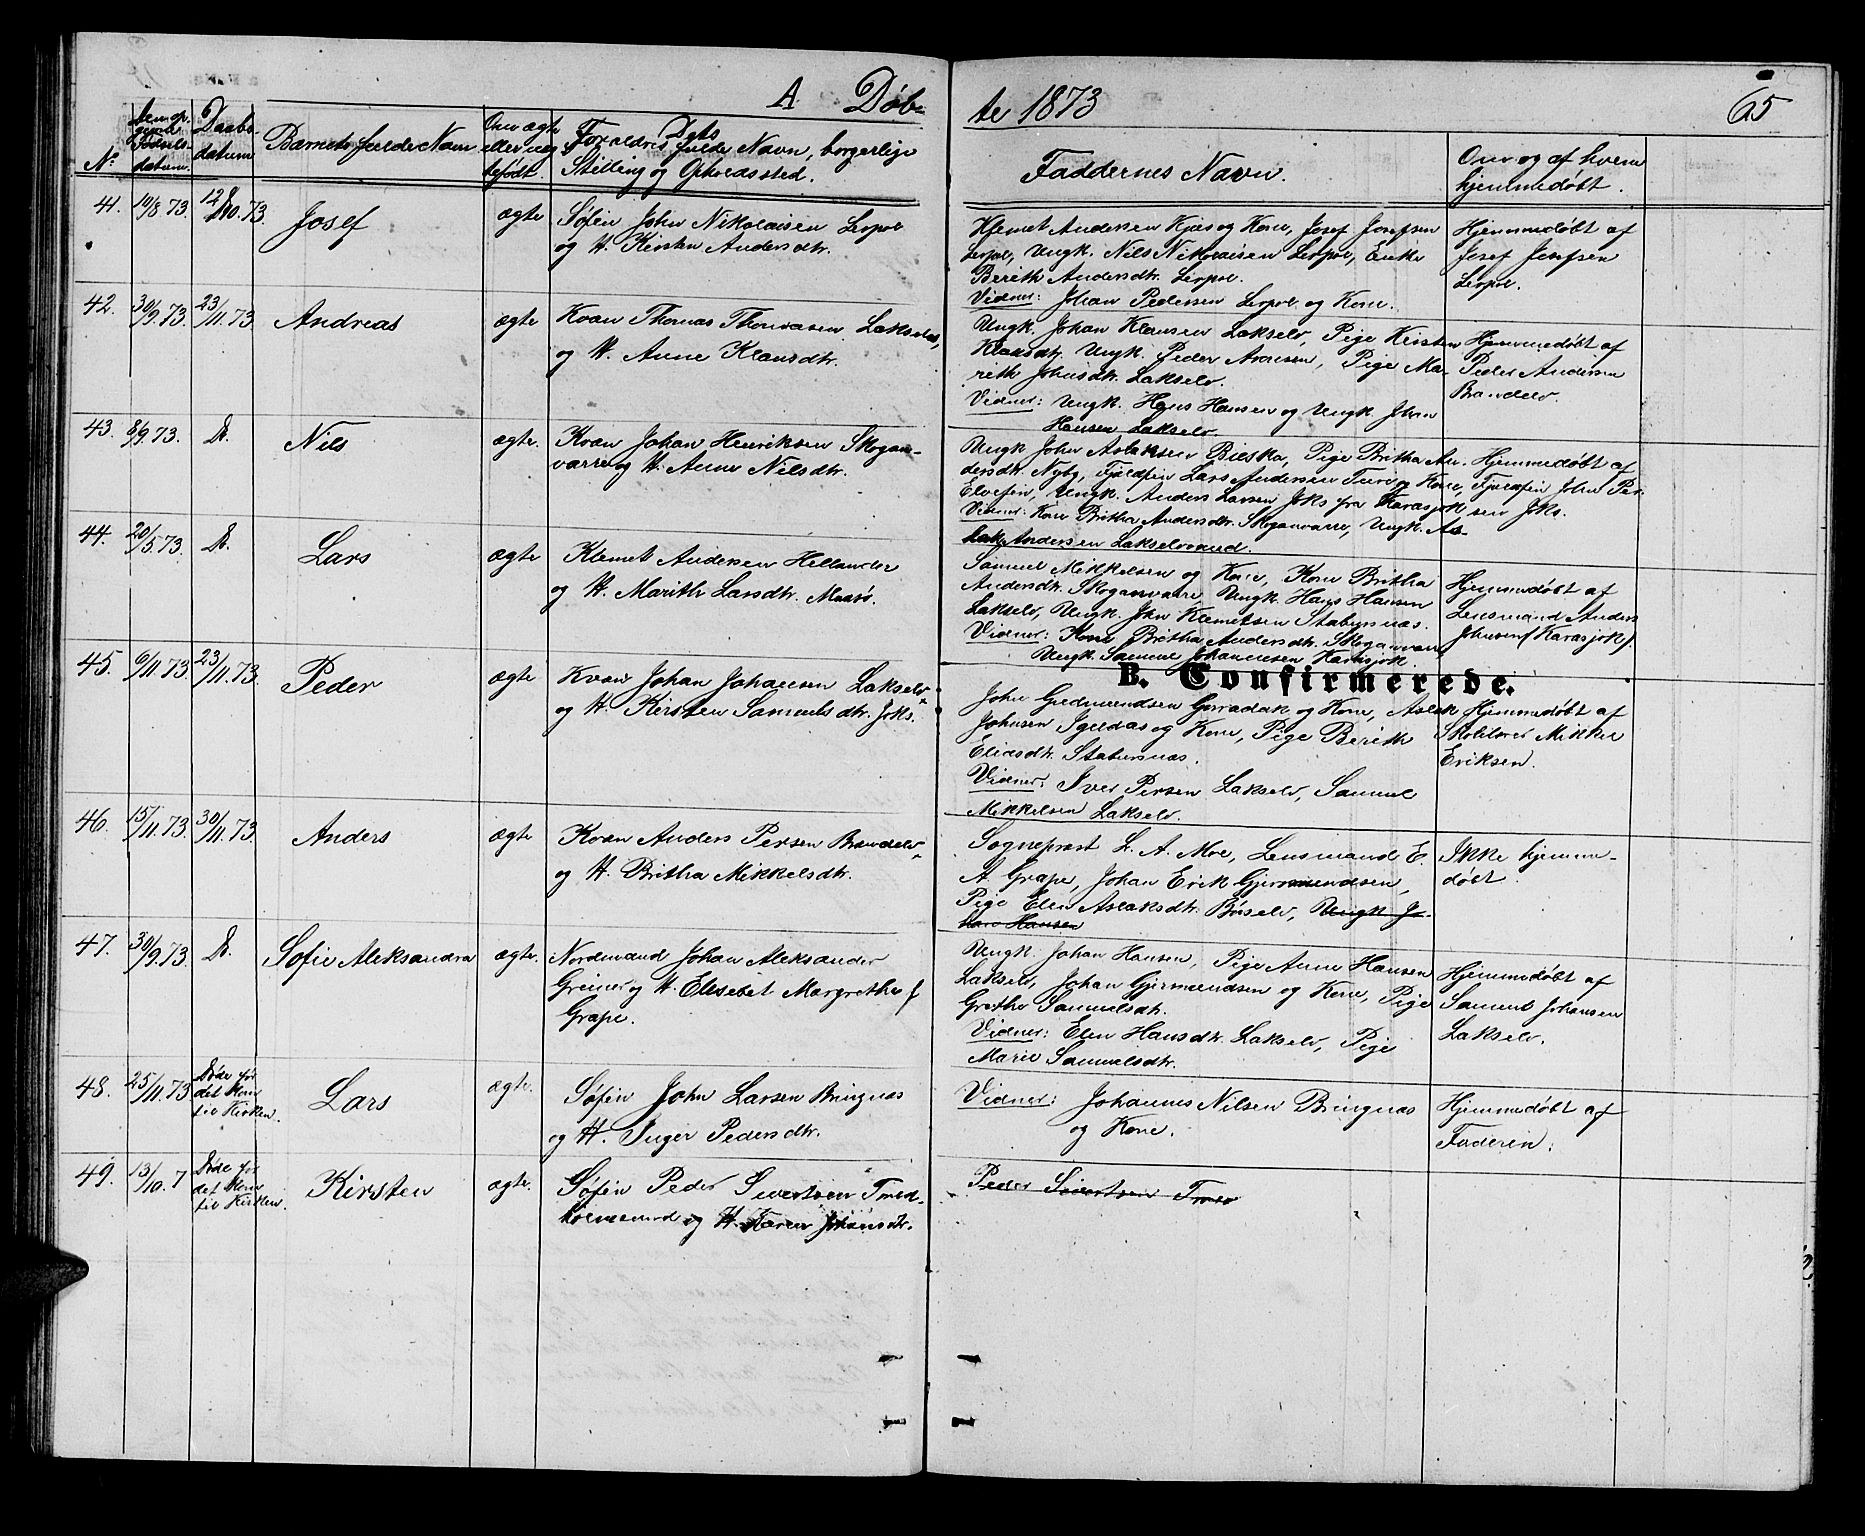 A Døb-
te 1873
65
No
Den op-
givne
Fødsels-
datum.
Daabs-
datum
Barnets fulde Navn
Om ægte
eller uæg-
tefødt.
Dets
Forældres fulde Navn, borgerlige
Stilling og Opholdssted.
Faddernes Navn.
Om og af hvem
hjemmedøbt.
41. 10/8 73. 12/10.73. Josef ægte
Søfin John Nikolaisen Leirpol
og H. Kirsten Andersdtr.
Klemet Andersen Kjæs og Kone, Josef Josefsen
Leirpol, Ungk. Nils Nikolaisen Leirpol, Enke
Berith Andersdtr. Leirpol.
Vidner: Johan Pedersen Leirpol og Kone.
Hjemmedøbt af
Josef Josefsen
Leirpol.
42. 30/9.73. 23/11.73 Andreas ægte
Kvæn Thomas Thomasen Lakselv,
og H. Anne Klausdtr.
Ungk. Johan Klausen Lakselv, Pige Kirsten
Klausdtr. Ungk. Peder Arnesen, Pige Ma-
reth Johnsdtr. Lakselv.
Vidner: Ungk. Hans Hansen og Ungk. Johan
Hansen Lakselv.
Hjemmedøbt af
Peder Andersen
Brandelv.
43. 8/9.73. D. Nils ægte.
Kvæn Johan Henriksen Skogan-
varre og H. Anne Nilsdtr.
Ungk John Aslaksen Bieska, Pige Britha An-
dersdtr. Nyby, Fjeldfin Lars Andersen Ture og Kone,
Elvefin, Ungk. Anders Larsen Joks fra Karasjok
Vidner: Kone Britha Andersdtr. Skoganvarre, Ungk. As-
lak Andersen Lakselvmund.
Hjemmedøbt af
Fjeldfin John Per-
sen Joks.
44. 20/5.73. D. Lars ægte
Klemet Andersen Hellander
og H. Marith Larsdtr. Maasø.
Samuel Mikkelsen og Kone, Kone Britha
Andersdtr. Skoganvarre Ungk. Hans Hansen
Lakselv, Ungk. John Klemetsen Stabursnæs.
Vidner: Kone Britha Andersdtr. Skoganvarre
Ungk. Samuel Johannesen Karasjok.
Hjemmedøbt af
Lensmand Anders
Johnsen (Karasjok).
B. Confirmerede.
45. 6/11.73 23/11.73. Peder ægte
Kvæn Johan Johansen Lakselv
og H. Kirsten Samuelsdtr. Joks.
John Gudmundsen Garradak og Kone, Aslak
Johnsen Igeldas og Kone, Pige Berith
Eliasdtr. Stabursnæs.
Vidner: Iver Persen Lakselv, Samuel
Mikkelsen Lakselv.
Hjemmedøbt af
Skolelærer Mikkel
Eriksen.
46. 15/11.73. 30/11.73. Anders ægte
Kvæn Anders Persen Brandelv
og H. Britha Mikkelsdtr.
Sogneprest L. A. Moe, Lensmand E.
A Grape, Johan Erik Gjermundsen,
Pige Elen Aslaksdtr. Børselv, Ungk Jo-
han Hansen
Ikke hjemme-
døbt.
47. 30/9.73. D. Sofie Aleksandra ægte.
Nordmand Johan Aleksander
Greiner og H. Elisebet Margrethe f
Grape.
Ungk. Johan Hansen, Pige Anne Hansen
Lakselv, Johan Gjermundsen og Kone, Pige
Grethe Samuelsdtr.
Vidner: Elen Hansdtr. Lakselv, Pige
Marie Samuelsdtr.
Hjemmedøbt af
Samuel Johansen
Lakselv.
48. 25/11.73 Døde før
det kom
til Kirken. Lars ægte.
Søfin John Larsen Bringnæs
og H. Inger Pedersdtr.
Vidner: Johannes Nilsen Bringnæs
og Kone.
Hjemmedøbt af
Faderen.
49. 13/10.7 Døde før
det kom
til Kirken. Kirsten ægte.
Søfin Peder Sivertsen Trold-
holmsund og H. Karen Johansdtr.
Peder Sivertsen Trold